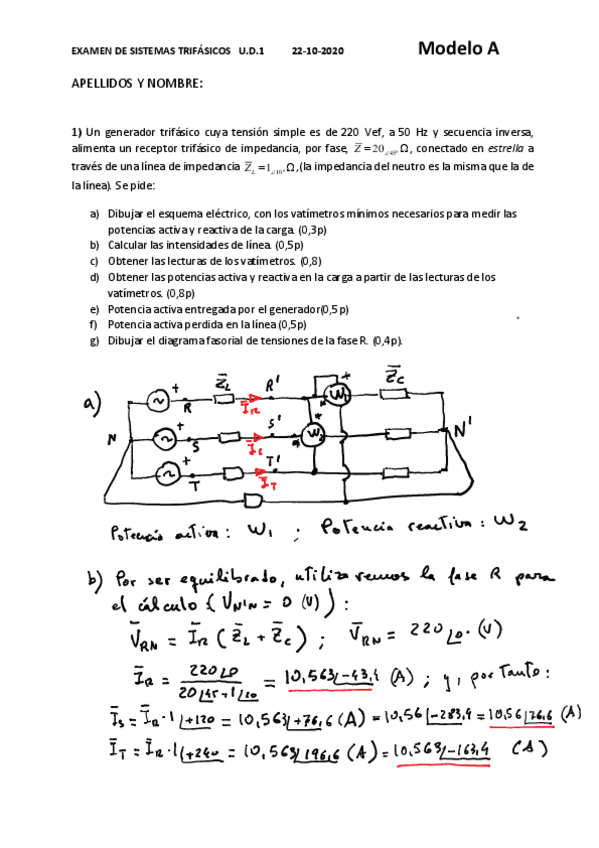 EXAMEN DE SISTEMAS TRIFÁSICOS U.D.1 22-10-2020 Modelo A
APELLIDOS Y NOMBRE:
1) Un generador trifásico cuya tensión simple es de 220 Vef, a 50 Hz y secuencia inversa,
alimenta un receptor trifásico de impedancia, por fase, Z̅ = 20∠45° Ω, conectado en estrella a
través de una línea de impedancia Z̅L = 1∠10° Ω,(la impedancia del neutro es la misma que la de
la línea). Se pide:
a) Dibujar el esquema eléctrico, con los vatímetros mínimos necesarios para medir las
potencias activa y reactiva de la carga. (0,3p)
b) Calcular las intensidades de línea. (0,5p)
c) Obtener las lecturas de los vatímetros. (0,8)
d) Obtener las potencias activa y reactiva en la carga a partir de las lecturas de los
vatímetros. (0,8p)
e) Potencia activa entregada por el generador(0,5p)
f) Potencia activa perdida en la línea (0,5p)
g) Dibujar el diagrama fasorial de tensiones de la fase R. (0,4p).
a)
+ R Z̅L R' I̅R + * W1 Z̅C
N + S S' I̅S * * W2 N'
+ T T' I̅T
Potencia activa: W1 ; Potencia reactiva: W2
b) Por ser equilibrado, utilizaremos la fase R para
el cálculo (VN'N = 0 (V)):
V̅RN = I̅R (Z̅L + Z̅C) ; V̅RN = 220∠0° (V)
I̅R = 220∠0 / 20∠45+1∠10 = 10,563∠-43,4 (A) ; y, por tanto:
I̅S = I̅R·1∠+120 = 10,563∠+76,6 (A) = 10,56∠-283,4 = 10,56∠76,6 (A)
I̅T = I̅R·1∠+240 = 10,563∠196,6 (A) = 10,563∠-163,4 (A)